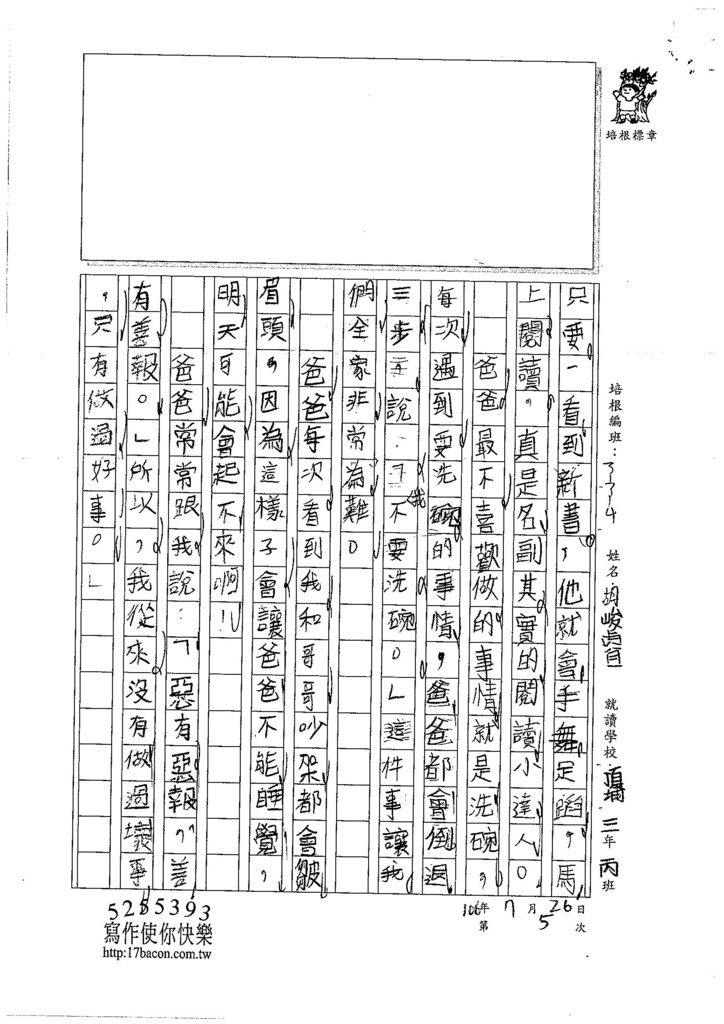 培根標章
培根編班：
姓名：胡峻
就讀學校
三年丙班
只要一看到新書，他就會手舞足蹈，馬
上閱讀。真是名副其實的閱讀小達人。
爸爸最不喜歡做的事情就是洗碗，
每次遇到要洗碗的事情，爸爸都會倒退
三步並說：「我不要洗碗。」這件事讓我
們全家非常為難。
爸爸每次看到我和哥哥吵架都會皺
眉頭，因為這樣子會讓爸爸不能睡覺，
明天可能會起不來啊！
爸爸常常跟我說：「惡有惡報，善
有善報。」所以，我從來沒有做過壞事
，只有做過好事。」
106年7月26日
第5次
5255393
寫作使你快樂
http:17bacon.com.tw